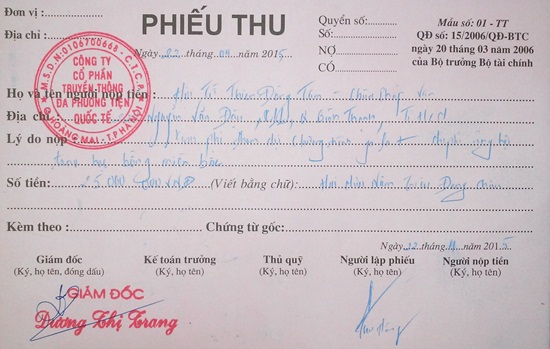 Đơn vị :
PHIẾU THU
Quyển số:
Mẫu số: 01 - TT
Địa chỉ :
Số:
QĐ số: 15/2006/QĐ-BTC
Ngày 22 tháng 04 năm 2015
NỢ
ngày 20 tháng 03 năm 2006
CÓ
của Bộ trưởng Bộ tài chính
M.S.D.N:0106700668-C.T.C.P
CÔNG TY
CỔ PHẦN
TRUYỀN THÔNG
ĐA PHƯƠNG TIỆN
QUỐC TẾ
Q. HOÀNG MAI - T.P HÀ NỘI
Họ và tên người nộp tiền: Thiện Đồng Tâm - Chùa
Địa chỉ: Nguyễn Văn Đậu, Q Bình Thạnh, T
Lý do nộp: phí tham chương
miền bắc
Số tiền: 25.000 000 VNĐ (Viết bằng chữ): Hai Mươi Năm Triệu Đồng chẵn
Kèm theo : Chứng từ gốc:
Ngày 22 tháng năm 2015
Giám đốc Kế toán trưởng Thủ quỹ Người lập phiếu Người nộp tiền
(Ký, họ tên, đóng dấu) (Ký, họ tên) (Ký, họ tên) (Ký, họ tên) (Ký, họ tên)
GIÁM ĐỐC
Dương Thị Trang